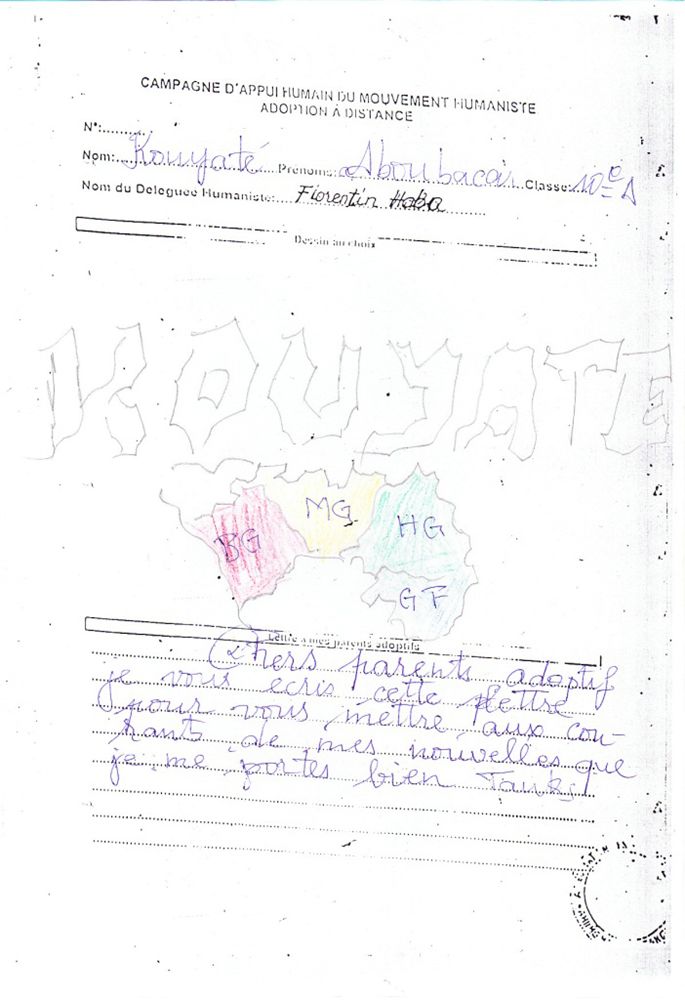 CAMPAGNE D'APPUI HUMAIN DU MOUVEMENT HUMANISTE
ADOPTION À DISTANCE
N°:...........
Nom:...Kouyaté Prénoms:..Aboubacar Classe:10e A
Nom du Deleguee Humaniste:...Fiorentin Haba
Dessin au choix
KOUYATE
BG MG HG
GF
Lettre a mes parents adoptifs
Chers parents adoptif
je vous ecris cette lettre
pour vous mettre aux cou-
rants de mes nouvelles que
je me portes bien